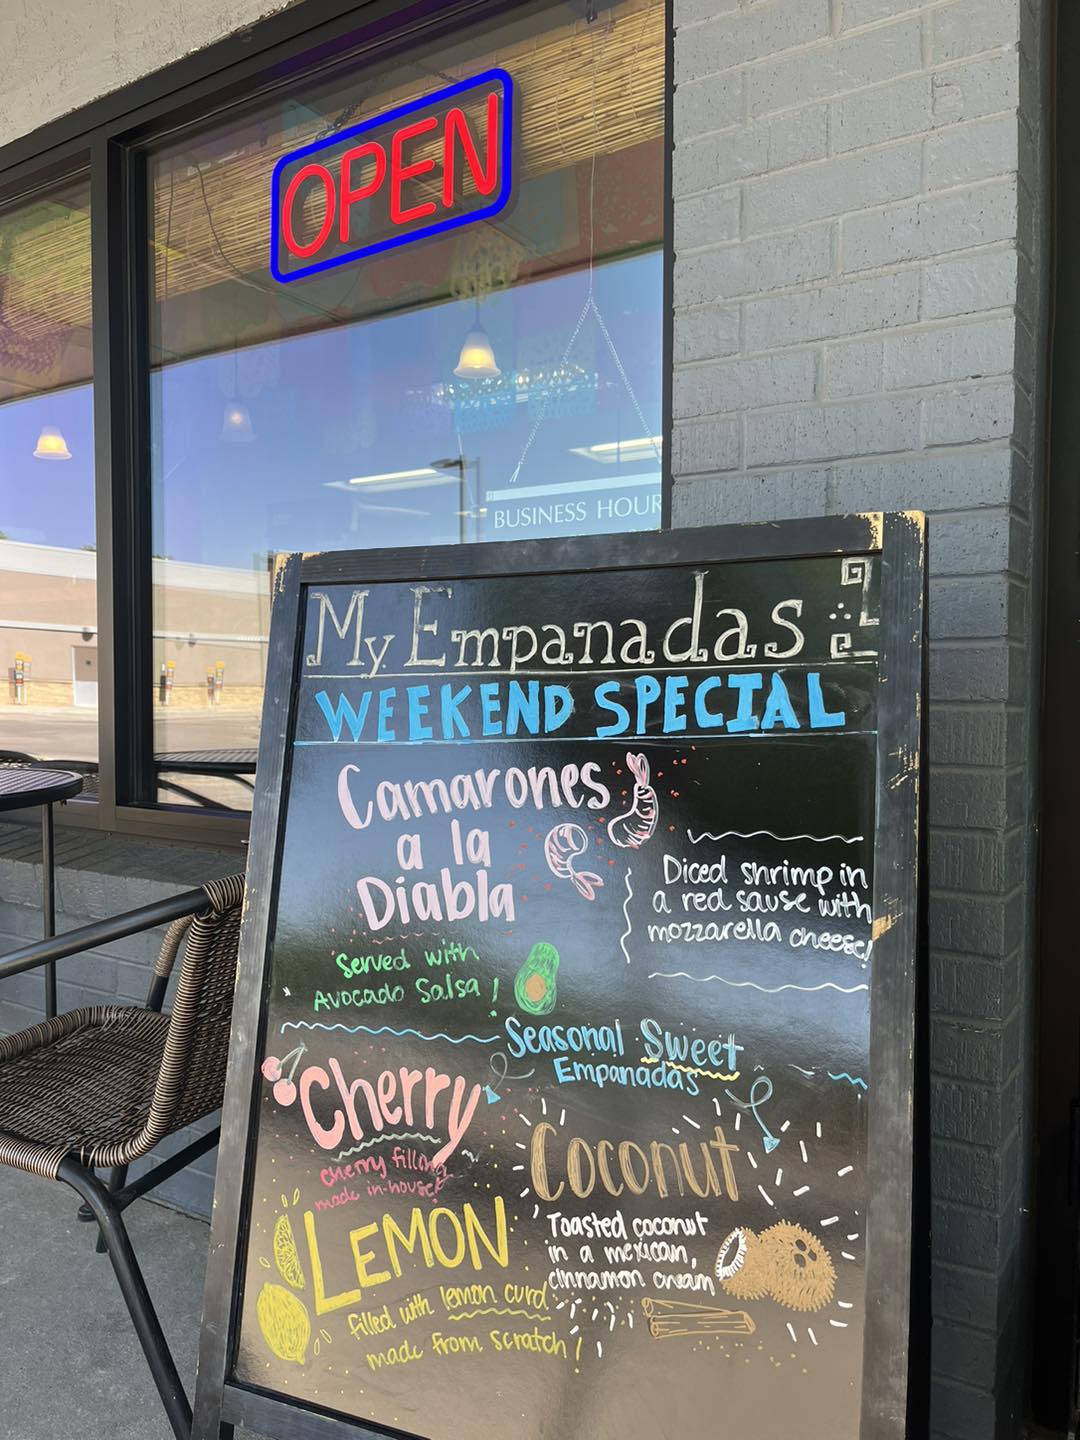 OPEN
BUSINESS HOUR
My Empanadas
WEEKEND SPECIAL
Camarones
a la
Diabla
Diced shrimp in
a red sauce with
mozzarella cheese!
Served with
Avocado Salsa!
Seasonal Sweet
Empanadas
Cherry
cherry filling
made in-house!
Coconut
Toasted coconut
in a mexican,
cinnamon cream
LEMON
filled with lemon curd
made from scratch!